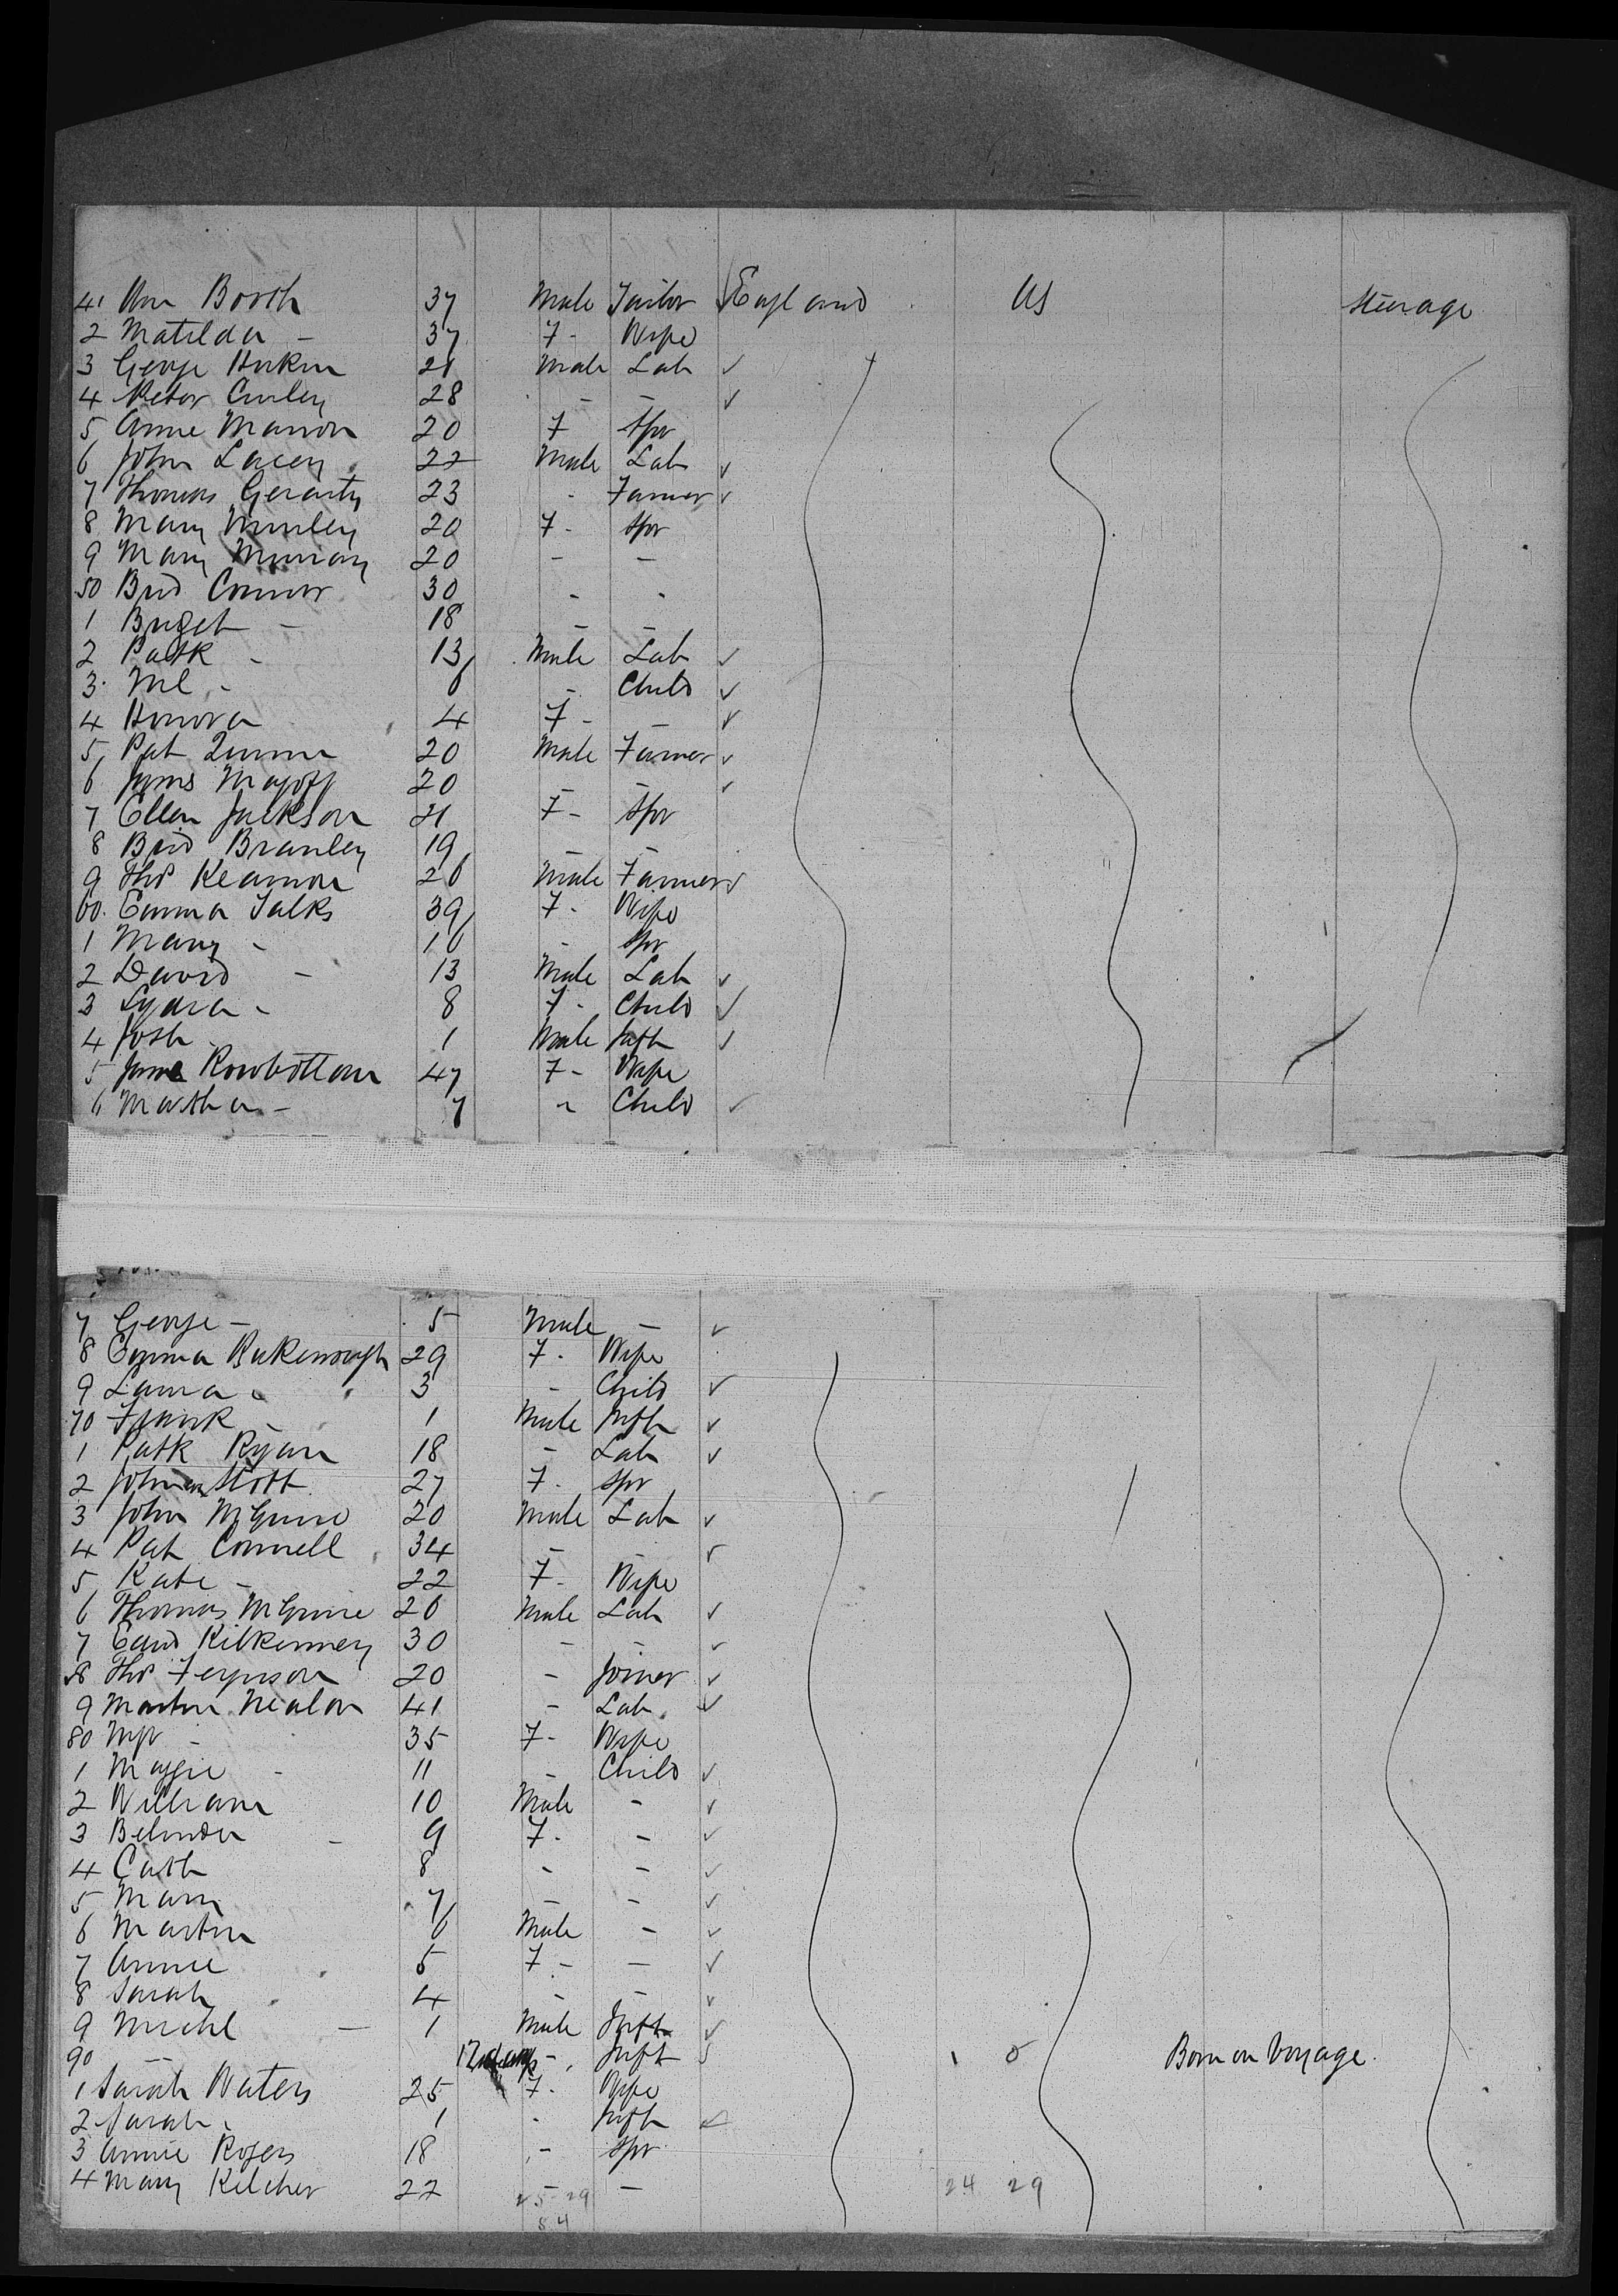 41 Wm Booth 37 Male Tailor England US Steerage
2 Matilda - 37 F- Wife
3 George 21 Male Lab ✓
4 Peter Curley 28 - - ✓
5 Annie Mannon 20 F Spr
6 John Lacey 22 Male Lab ✓
7 Thomas Gerarty 23 - Farmer ✓
8 Mary Munley 20 F- Spr
9 Mary Murray 20 - -
50 Brid Connor 30 - -
1 Briget - 18 - -
2 Patk - 13 Male Lab ✓
3 Ml - 6 - Child ✓
4 Honora 4 F- - ✓
5 Pat Quinn 20 Male Farmer ✓
6 James 20 - - ✓
7 Ellen Jackson 21 F- Spr
8 Brid Branley 19 - -
9 Thos Keamon 26 Male Farmer ✓
60 Emma Talks 39 F- Wife
1 Mary - 16 - Spr
2 David - 13 Male Lab ✓
3 Lydia - 8 F- Child ✓
4 Josh - 1 Male Inft ✓
5 Jane Rowbottom 47 F- Wife
6 Martha - 7 " Child ✓
7 George - 5 Male - ✓
8 Emma 29 F- Wife
9 Laura - 3 - Child ✓
70 Frank - 1 Male Inft ✓
1 Patk Ryan 18 - Lab ✓
2 Stott 27 F- Spr
3 John McGuire 20 Male Lab ✓
4 Pat Connell 34 - - ✓
5 Kate - 22 F- Wife
6 Thomas McGuire 26 Male Lab ✓
7 Edwd Kilkenney 30 - - ✓
8 Thos Ferguson 20 - Joiner ✓
9 Martin Nealon 41 - Lab ✓
80 - 35 F- Wife
1 Maggie - 11 - Child ✓
2 William 10 Male - ✓
3 Belinda - 9 F- - ✓
4 Cath 8 - - ✓
5 Mary 7 - - ✓
6 Martin 6 Male - ✓
7 Annie 5 F- - ✓
8 Sarah 4 - - ✓
9 Michl - 1 Male Inft ✓
90 - 12 days - Inft Born on Voyage.
1 Sarah Waters 25 F- Wife
2 Sarah - 1 - Inft ✓
3 Annie Rogers 18 - Spr
4 Mary Kelcher 22 - -
25-29 24 29
84